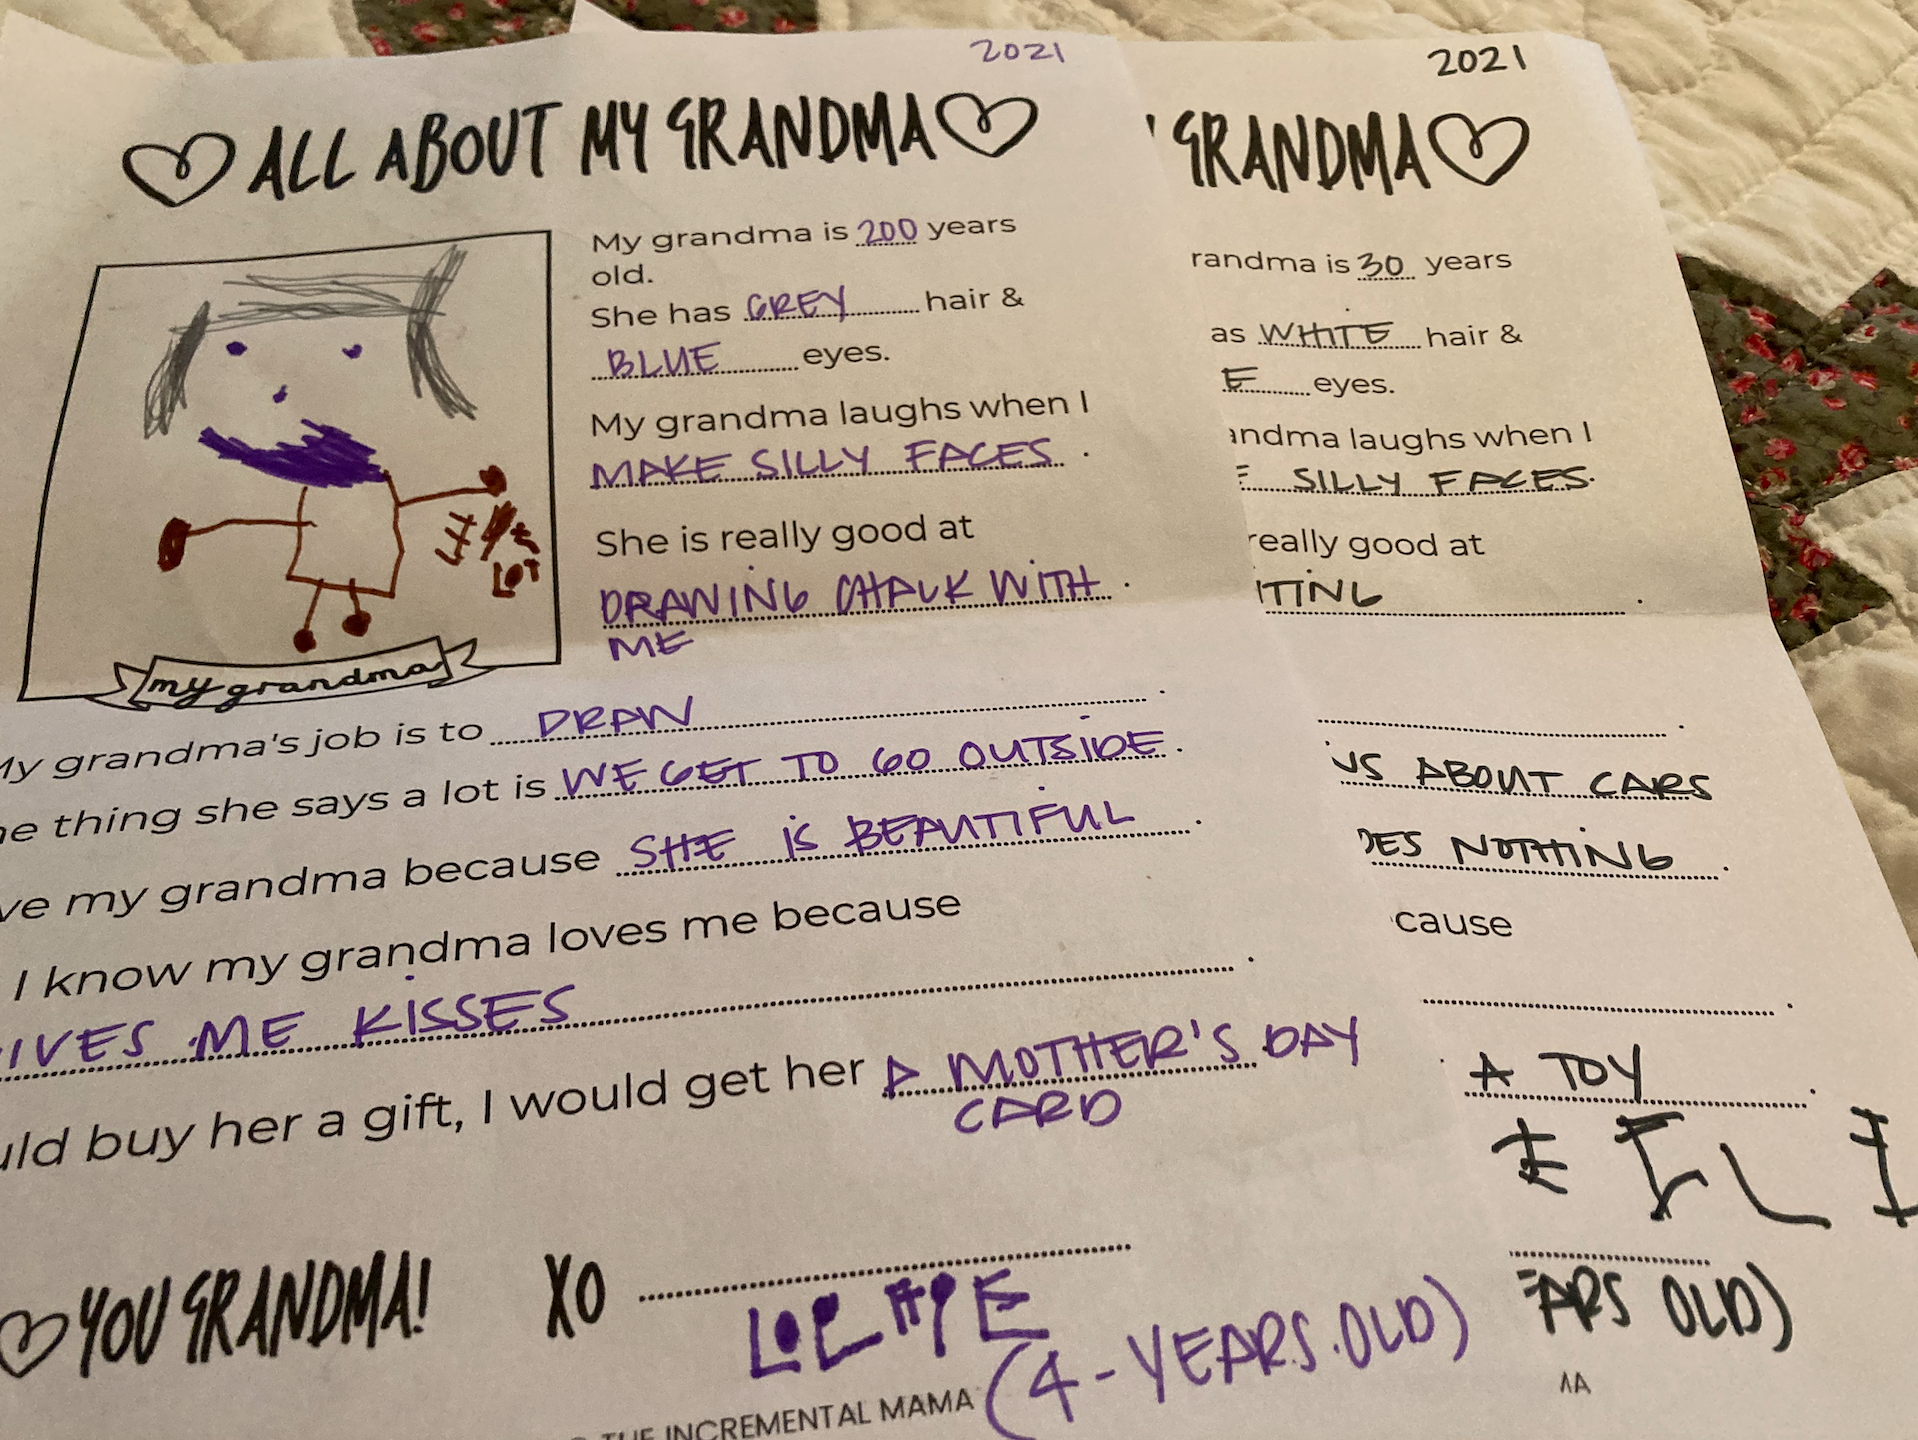 2021
ALL ABOUT MY GRANDMA
My grandma is 200 years
old.
She has GREY hair &
BLUE eyes.
My grandma laughs when I
MAKE SILLY FACES.
She is really good at
DRAWING CHALK WITH.
ME
LOT
my grandma
My grandma's job is to DRAW.
ne thing she says a lot is WE GET TO GO OUTSIDE.
ve my grandma because SHE IS BEAUTIFUL.
I know my grandma loves me because
IVES ME KISSES.
uld buy her a gift, I would get her A MOTHER'S DAY
CARD
YOU GRANDMA!
XO
(4-YEARS OLD)
THE INCREMENTAL MAMA
2021
GRANDMA
randma is 30 years
as WHITE hair &
E eyes.
andma laughs when I
E SILLY FACES.
really good at
TING.
US ABOUT CARS
OES NOTHING.
cause
A TOY.
EARS OLD)
MA